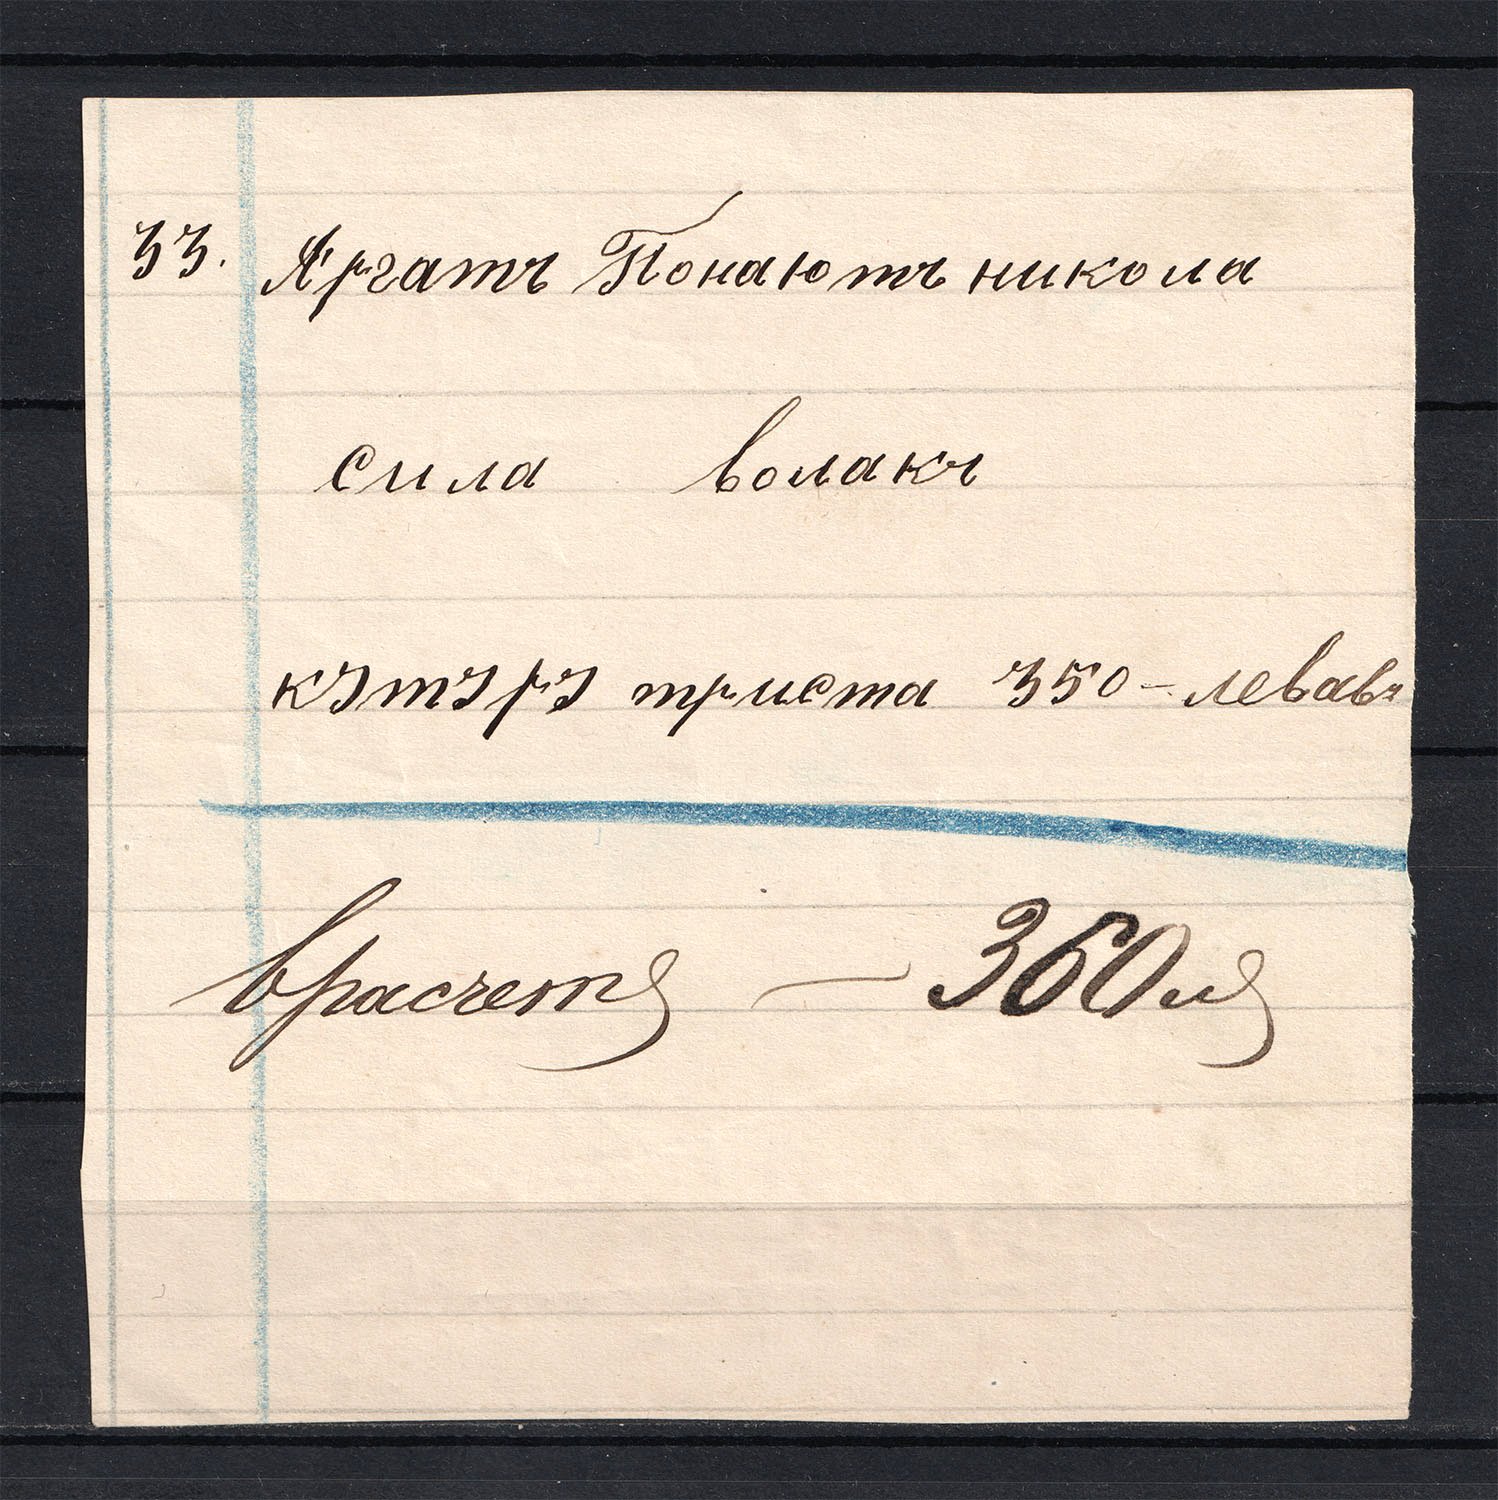 33. Аргатъ Понаютъ никола
сила волакъ
кэтэрэ триста 350 - левавъ
врасчетъ — 360 л